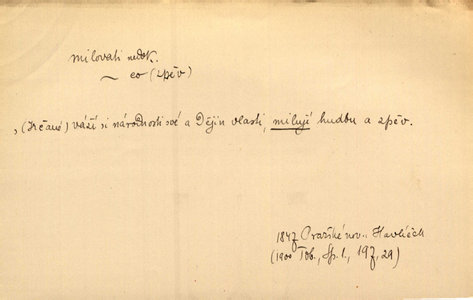 milovati nedok.
~ co (zpěv)
„(Křčané) váží si národnosti své a Dějin vlasti, milují hudbu a zpěv.
1847 Pražské nov. - Havlíček
(1900 Tob., Sp. I., 197, 29)